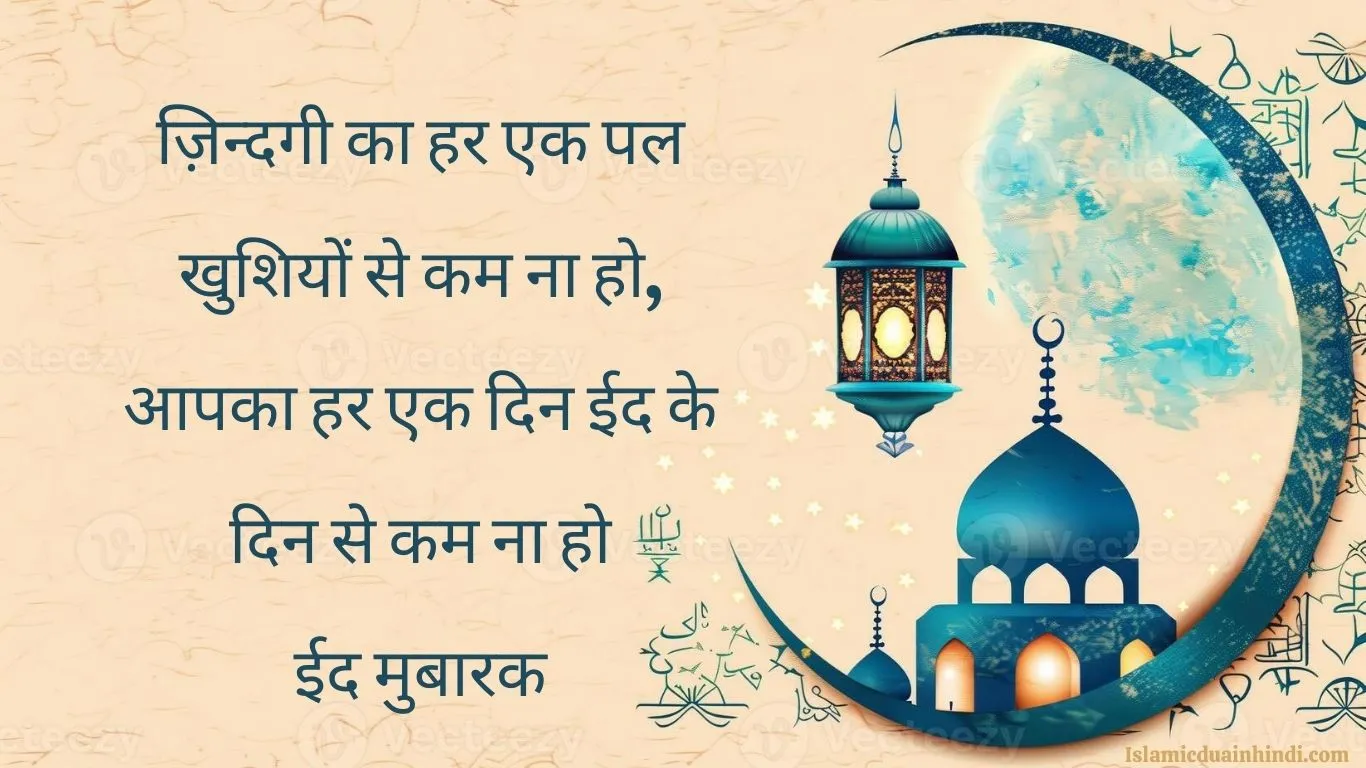 ज़िन्दगी का हर एक पल
खुशियों से कम ना हो,
आपका हर एक दिन ईद के
दिन से कम ना हो
ईद मुबारक
Vecteezy
Islamicduainhindi.com